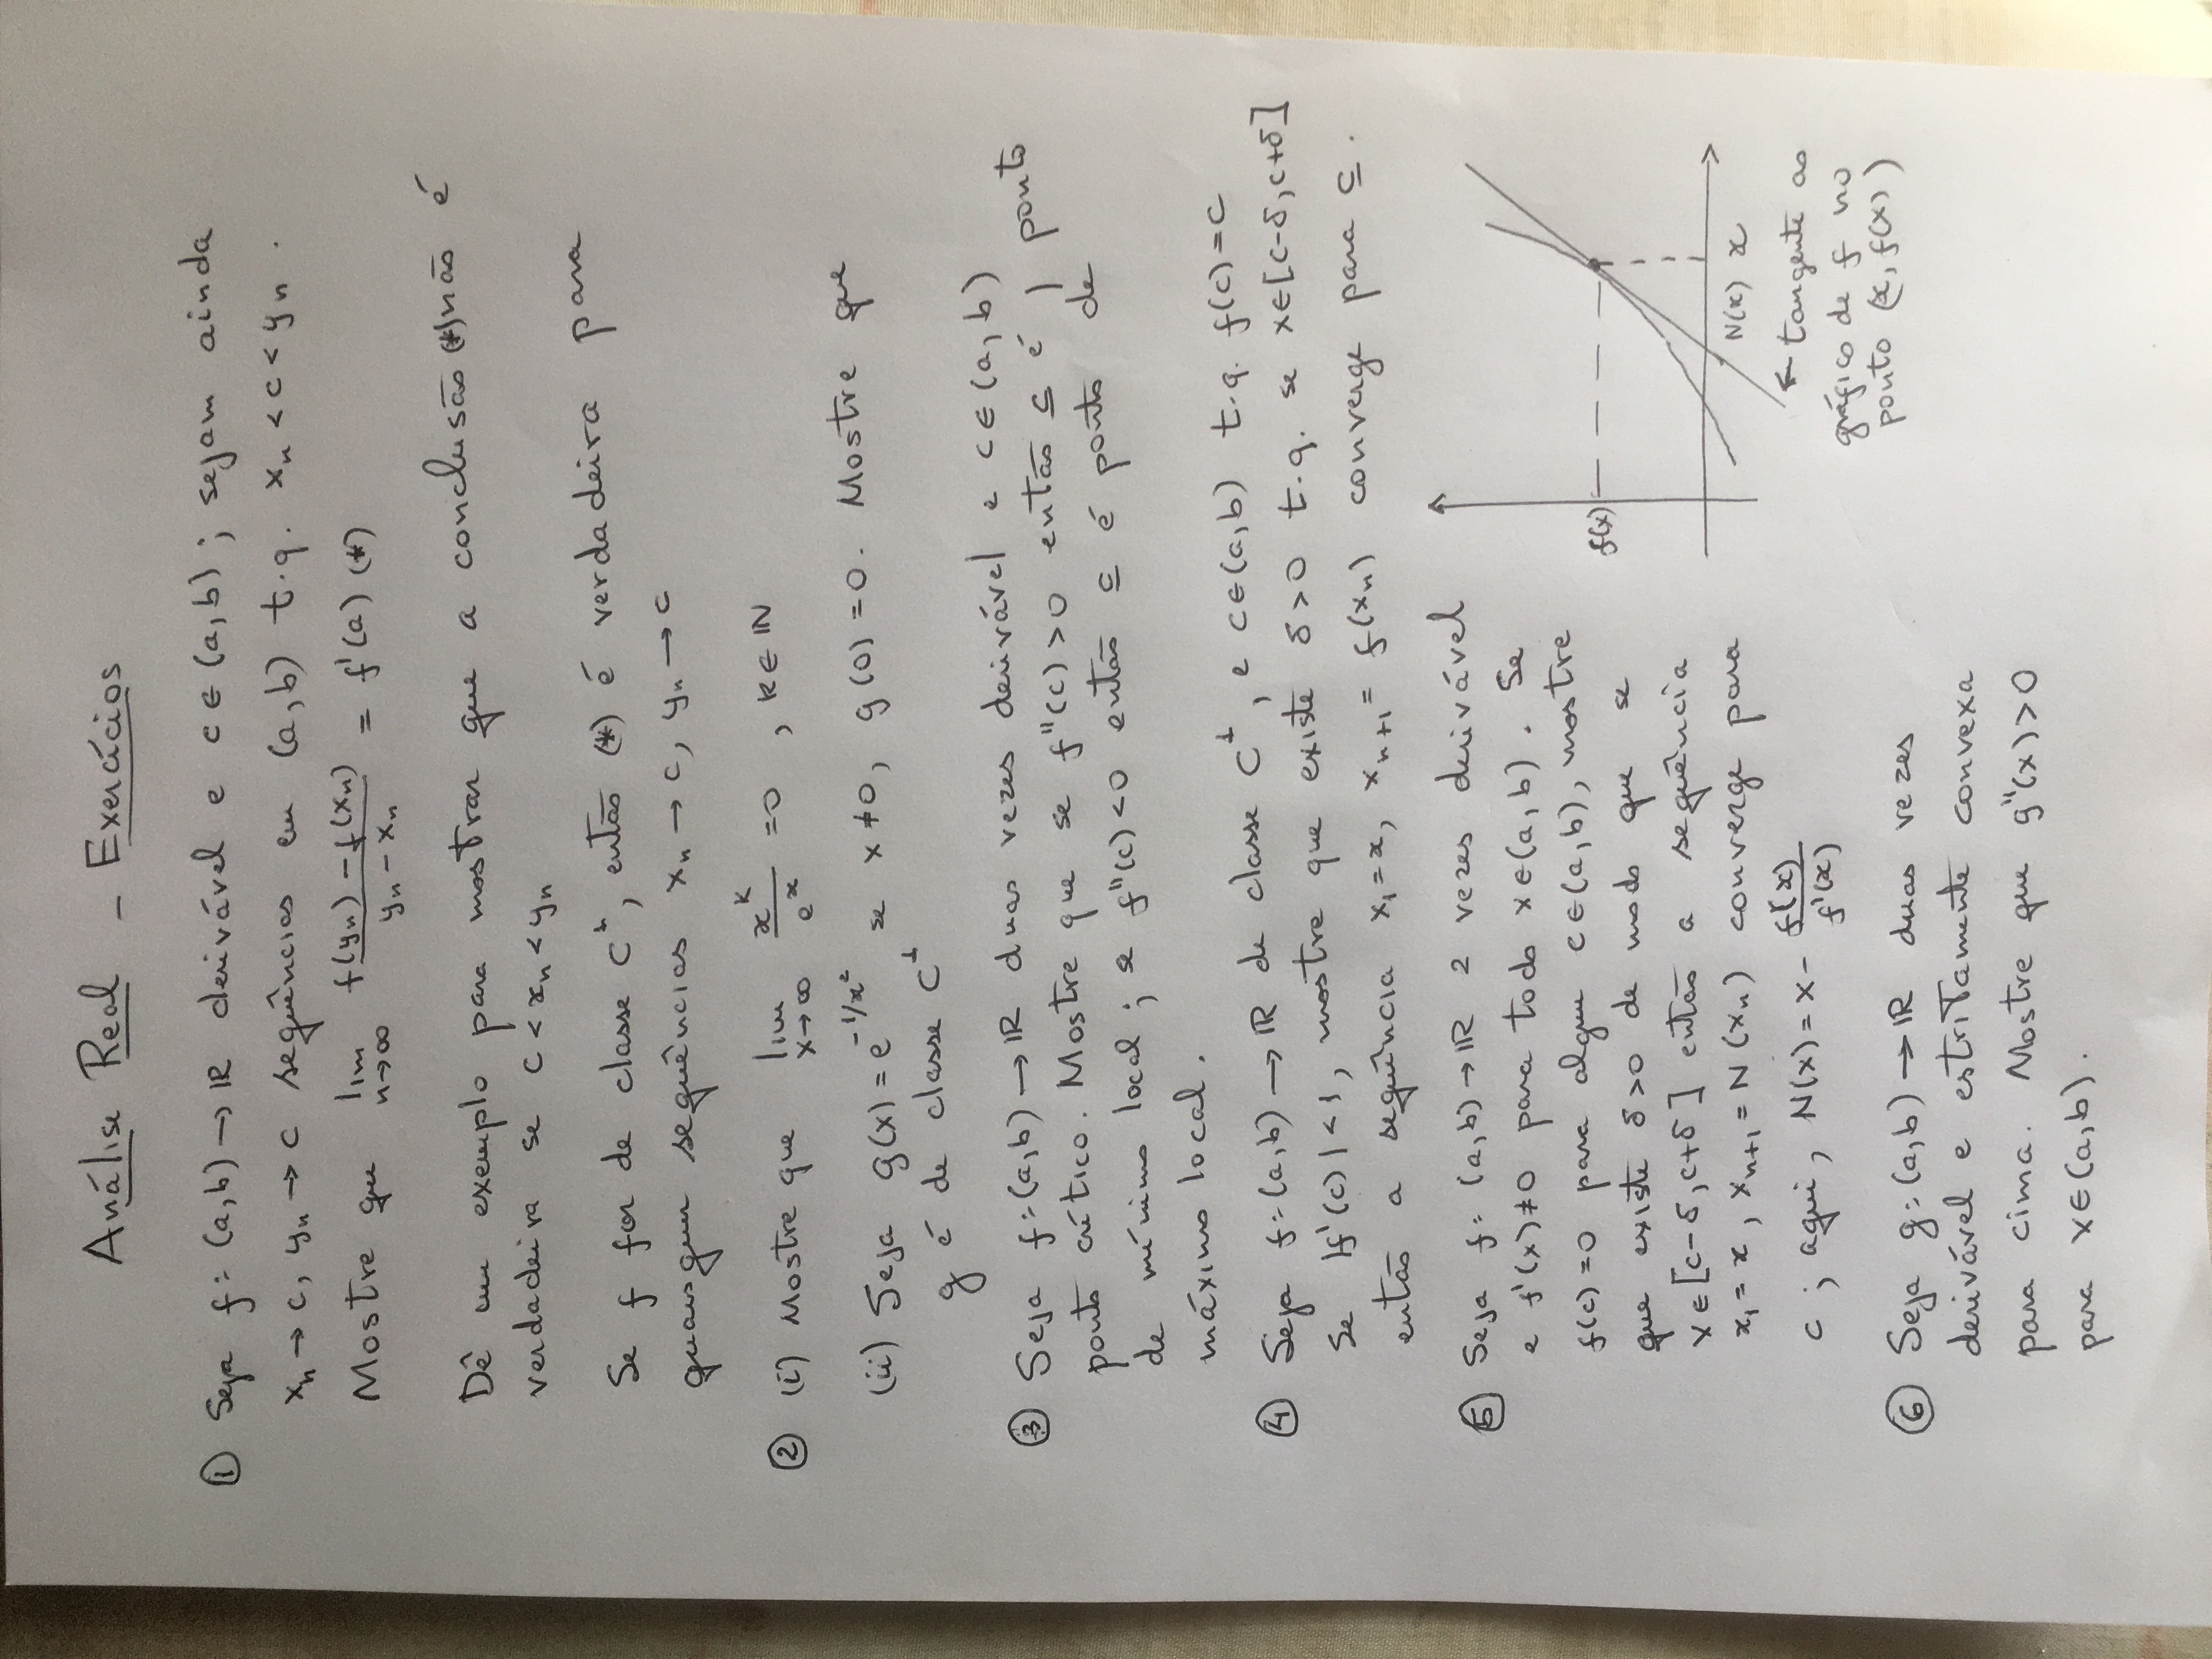 Análise Real - Exercícios
① Seja f: (a,b) → ℝ derivável e c ∈ (a,b); sejam ainda
xn → c, yn → c sequências em (a,b) t.q. xn < c < yn.
Mostre que lim n→∞ f(yn) - f(xn) / yn - xn = f'(a) (*)
Dê um exemplo para mostrar que a conclusão (*) não é
verdadeira se c < xn < yn
Se f for de classe C¹, então (*) é verdadeira para
quaisquer sequências xn → c, yn → c
② (i) Mostre que lim x→∞ x^k / e^x = 0, k ∈ ℕ
(ii) Seja g(x) = e^{-1/x²} se x ≠ 0, g(0) = 0. Mostre que
g é de classe C¹
③ Seja f: (a,b) → ℝ duas vezes derivável e c ∈ (a,b)
ponto crítico. Mostre que se f''(c) > 0 então c é ponto
de mínimo local; se f''(c) < 0 então c é ponto de
máximo local.
④ Seja f: (a,b) → ℝ de classe C¹, e c ∈ (a,b) t.q. f(c) = c
Se |f'(c)| < 1, mostre que existe δ > 0 t.q. se x ∈ [c-δ, c+δ]
então a sequência x₁ = x, xn+1 = f(xn) converge para c.
⑤ Seja f: (a,b) → ℝ 2 vezes derivável
e f'(x) ≠ 0 para todo x ∈ (a,b). Se
f(c) = 0 para algum c ∈ (a,b), mostre
que existe δ > 0 de modo que se
x ∈ [c-δ, c+δ] então a sequência
x₁ = x, xn+1 = N(xn) converge para
c; aqui, N(x) = x - f(x) / f'(x)
f(x)
N(x) x
tangente ao
gráfico de f no
ponto (x, f(x))
⑥ Seja g: (a,b) → ℝ duas vezes
derivável e estritamente convexa
para cima. Mostre que g''(x) > 0
para x ∈ (a,b).